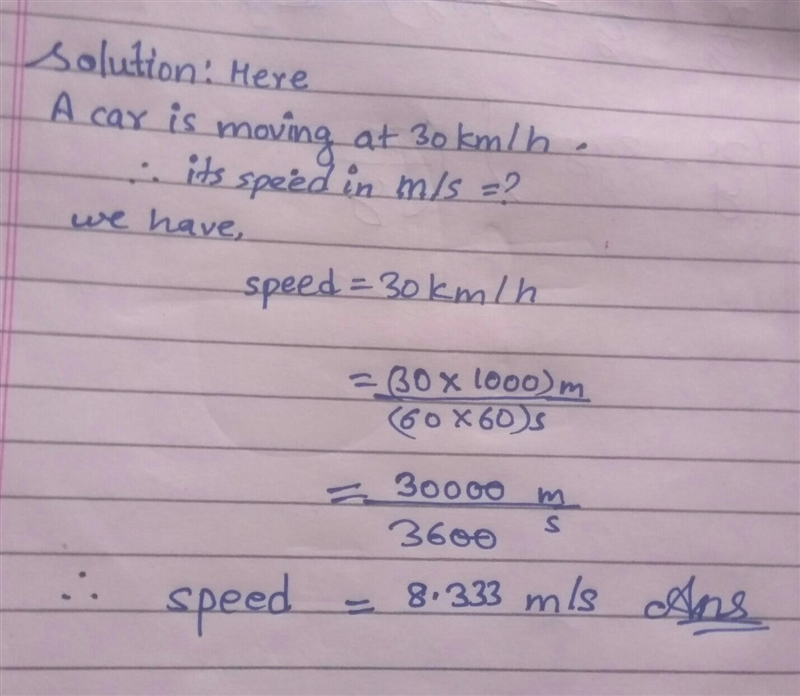 Solution: Here
A car is moving at 30 km/h.
∴ its speed in m/s =?
we have,
speed = 30 km/h
= (30 × 1000) m
(60 × 60) s
= 30000 m
3600 s
∴ speed = 8.333 m/s Ans